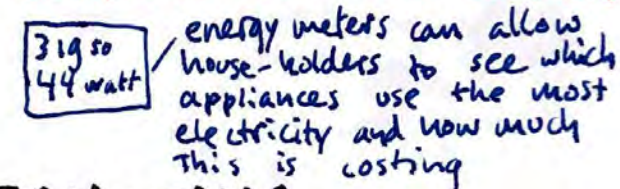 energy meters can allow
house-holders to see which
appliances use the most
electricity and how much
This is costing
44 watt